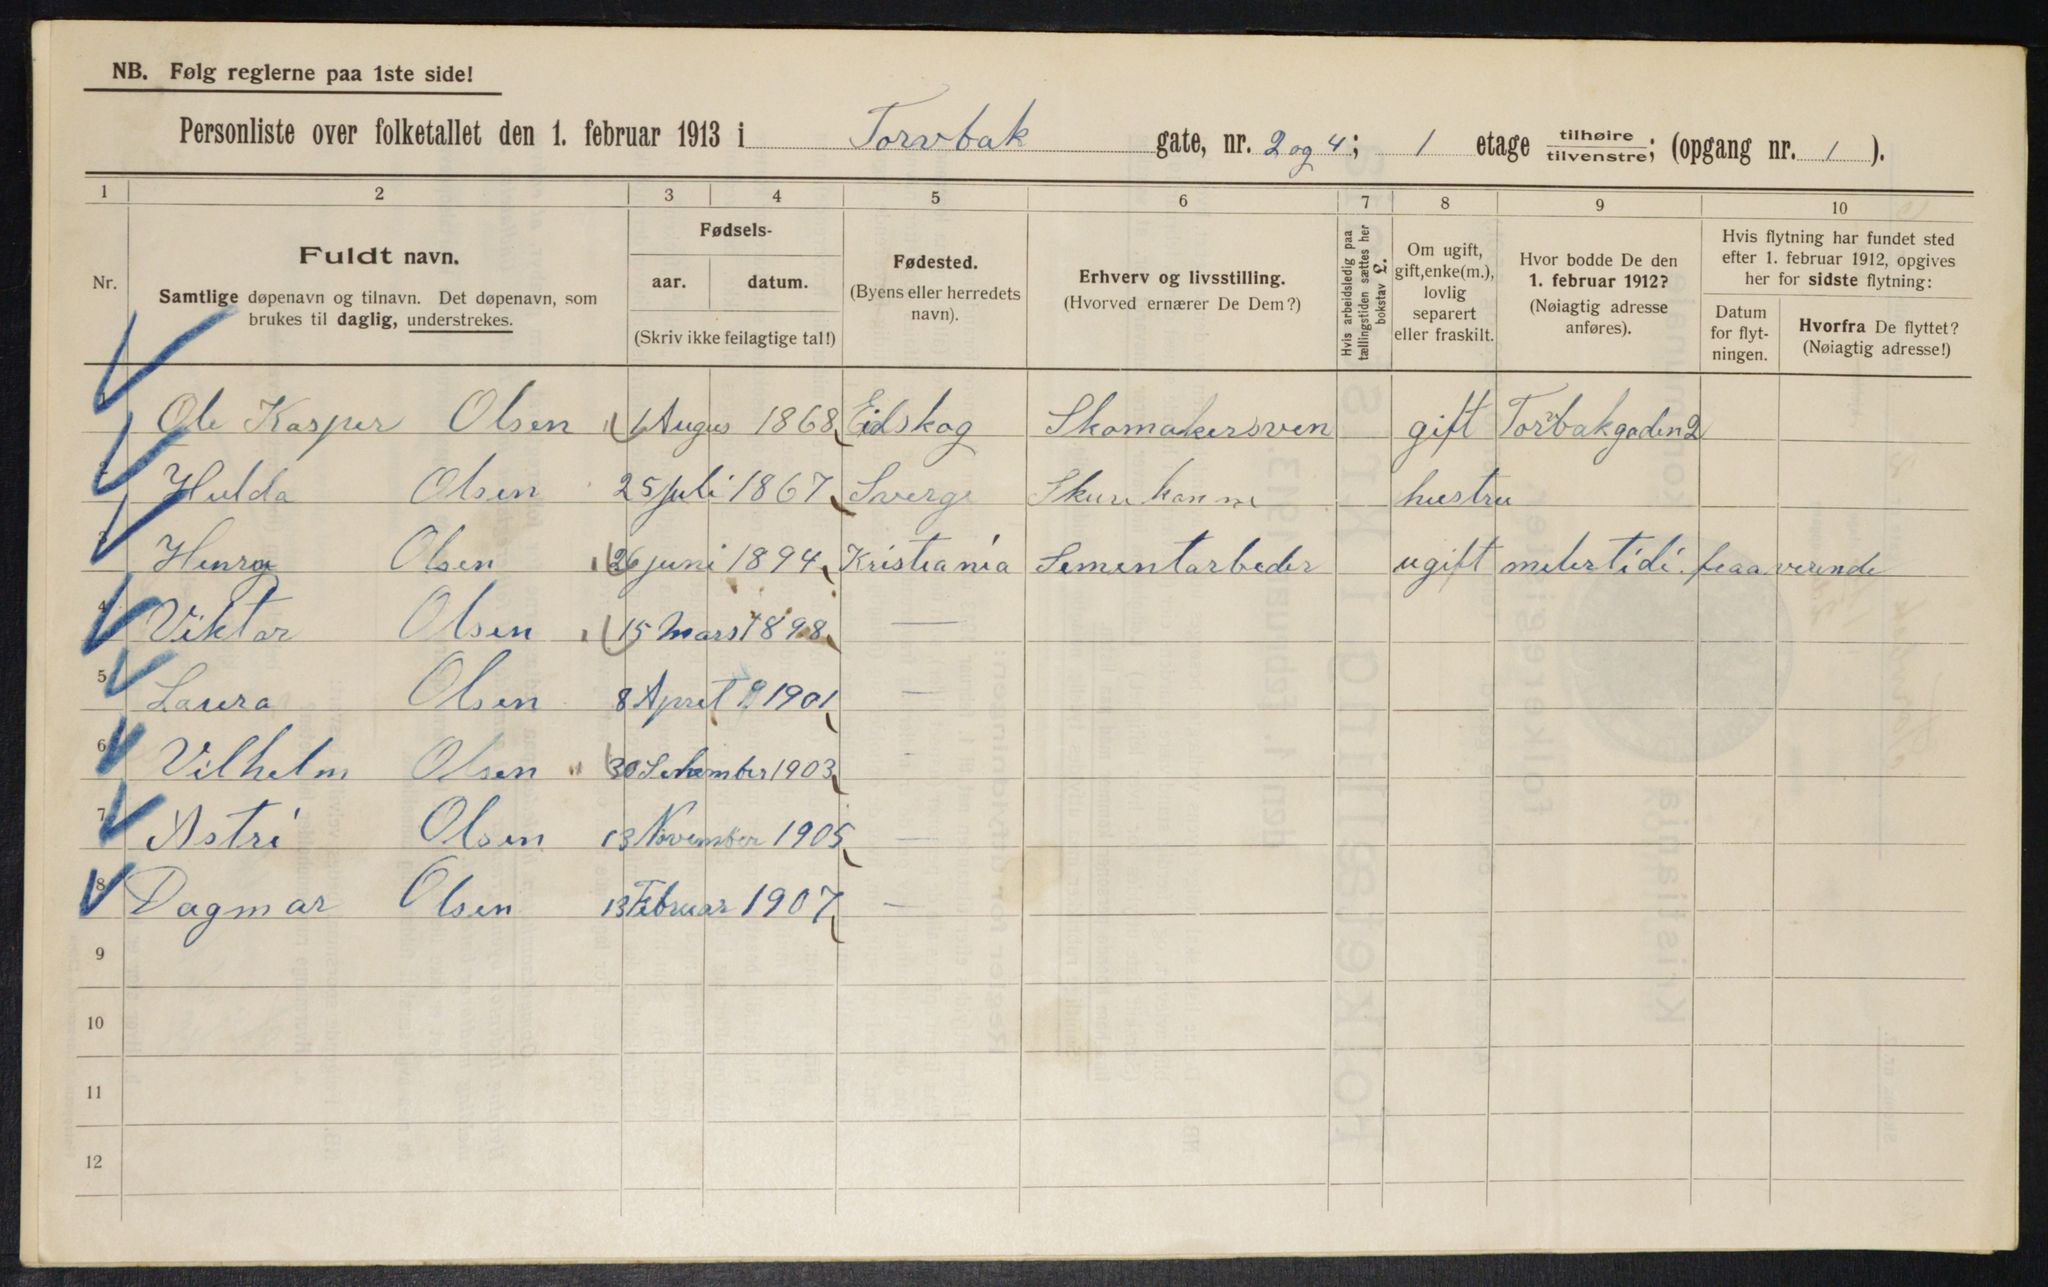 NB. Følg reglerne paa 1ste side!
Personliste over folketallet den 1. februar 1913 i Torvbak gate, nr. 2 og 4; 1 etage tilhøire / tilvenstre; (opgang nr. 1 ).
1 2 3 4 5 6 7 8 9 10
Nr.
Fuldt navn.
Samtlige døpenavn og tilnavn. Det døpenavn, som
brukes til daglig, understrekes.
Fødsels-
aar. datum.
(Skriv ikke feilagtige tal!)
Fødested.
(Byens eller herredets
navn).
Erhverv og livsstilling.
(Hvorved ernærer De Dem?)
Hvis arbeidsledig paa
tællingstiden sættes her
bokstav L.
Om ugift,
gift, enke(m.),
lovlig
separert
eller fraskilt.
Hvor bodde De den
1. februar 1912?
(Nøiagtig adresse
anføres).
Hvis flytning har fundet sted
efter 1. februar 1912, opgives
her for sidste flytning:
Datum
for flyt-
ningen.
Hvorfra De flyttet?
(Nøiagtig adresse!)
1 Ole Kasper Olsen 1 Augus 1868 Eidskog Skomakersven gift Torvbakgaden 2
2 Hulda Olsen 25 juli 1867 Sverge hustru
3 Henry Olsen 26 juni 1894 Kristiania Sementarbeder ugift
4 Viktor Olsen 15 Mars 1898 —
5 Laura Olsen 8 April 1901 —
6 Vilhelm Olsen 30 1903 -
7 Astri Olsen 13 November 1905 —
8 Dagmar Olsen 13 Februar 1907 —
9
10
11
12